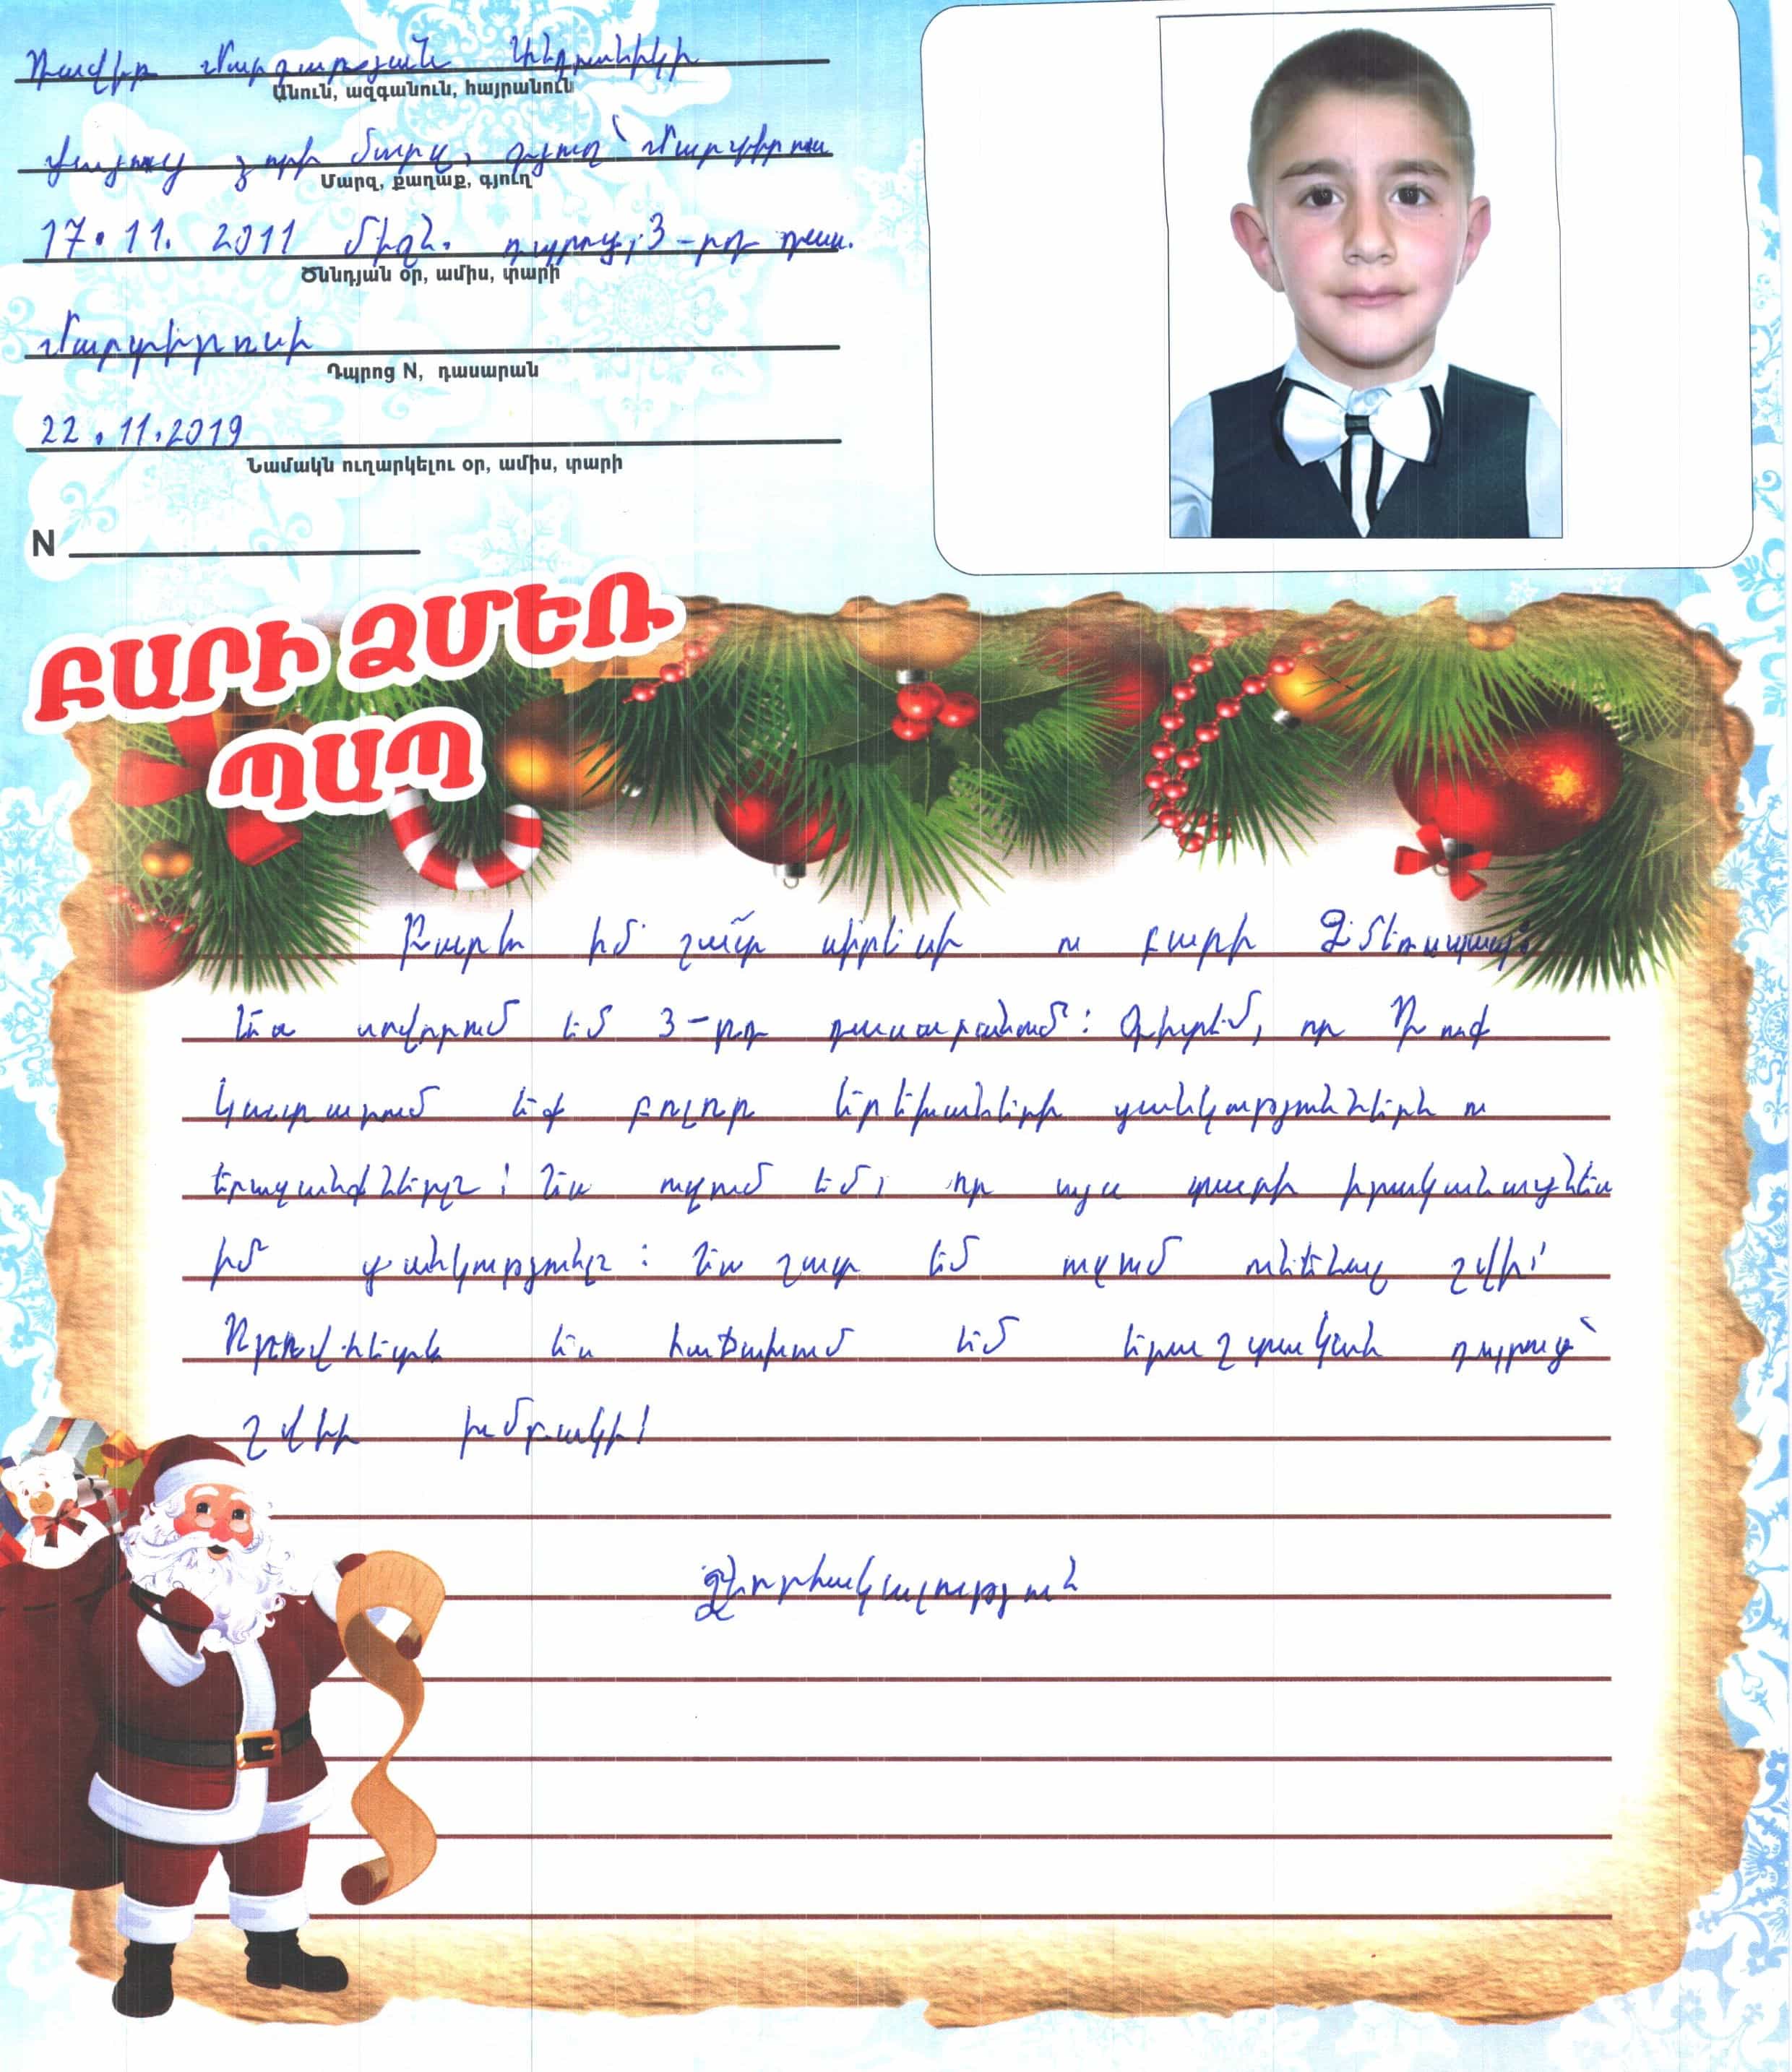 Դավիթ Մարգարյան Անդրանիկի
Անուն, ազգանուն, հայրանուն
Վայոց ձորի մարզ, գյուղ՝ Մարտիրոս
Մարզ, քաղաք, գյուղ
17.11. 2011 միջն. դպրոց, 3-րդ դաս.
Ծննդյան օր, ամիս, տարի
Մարտիրոսի
Դպրոց N, դասարան
22.11.2019
Նամակն ուղարկելու օր, ամիս, տարի
N
ԲԱՐԻ ՁՄԵՌ
ՊԱՊ
Բարև իմ շա՜տ սիրելի ու բարի Ձմեռ պապի:
Ես սովորում եմ 3-րդ դասարանում: Գիտեմ, որ Դուք
կատարում եք բոլոր երեխաների ցանկություններն ու
երազանքները: Ես ուզում եմ, որ այս տարի իրականացնես
իմ ցանկությունը: Ես շատ եմ ուզում ունենալ շվի:
Որովհետև ես հաճախում եմ երաժշտական դպրոց՝
շվիի խմբակի:
Շնորհակալություն